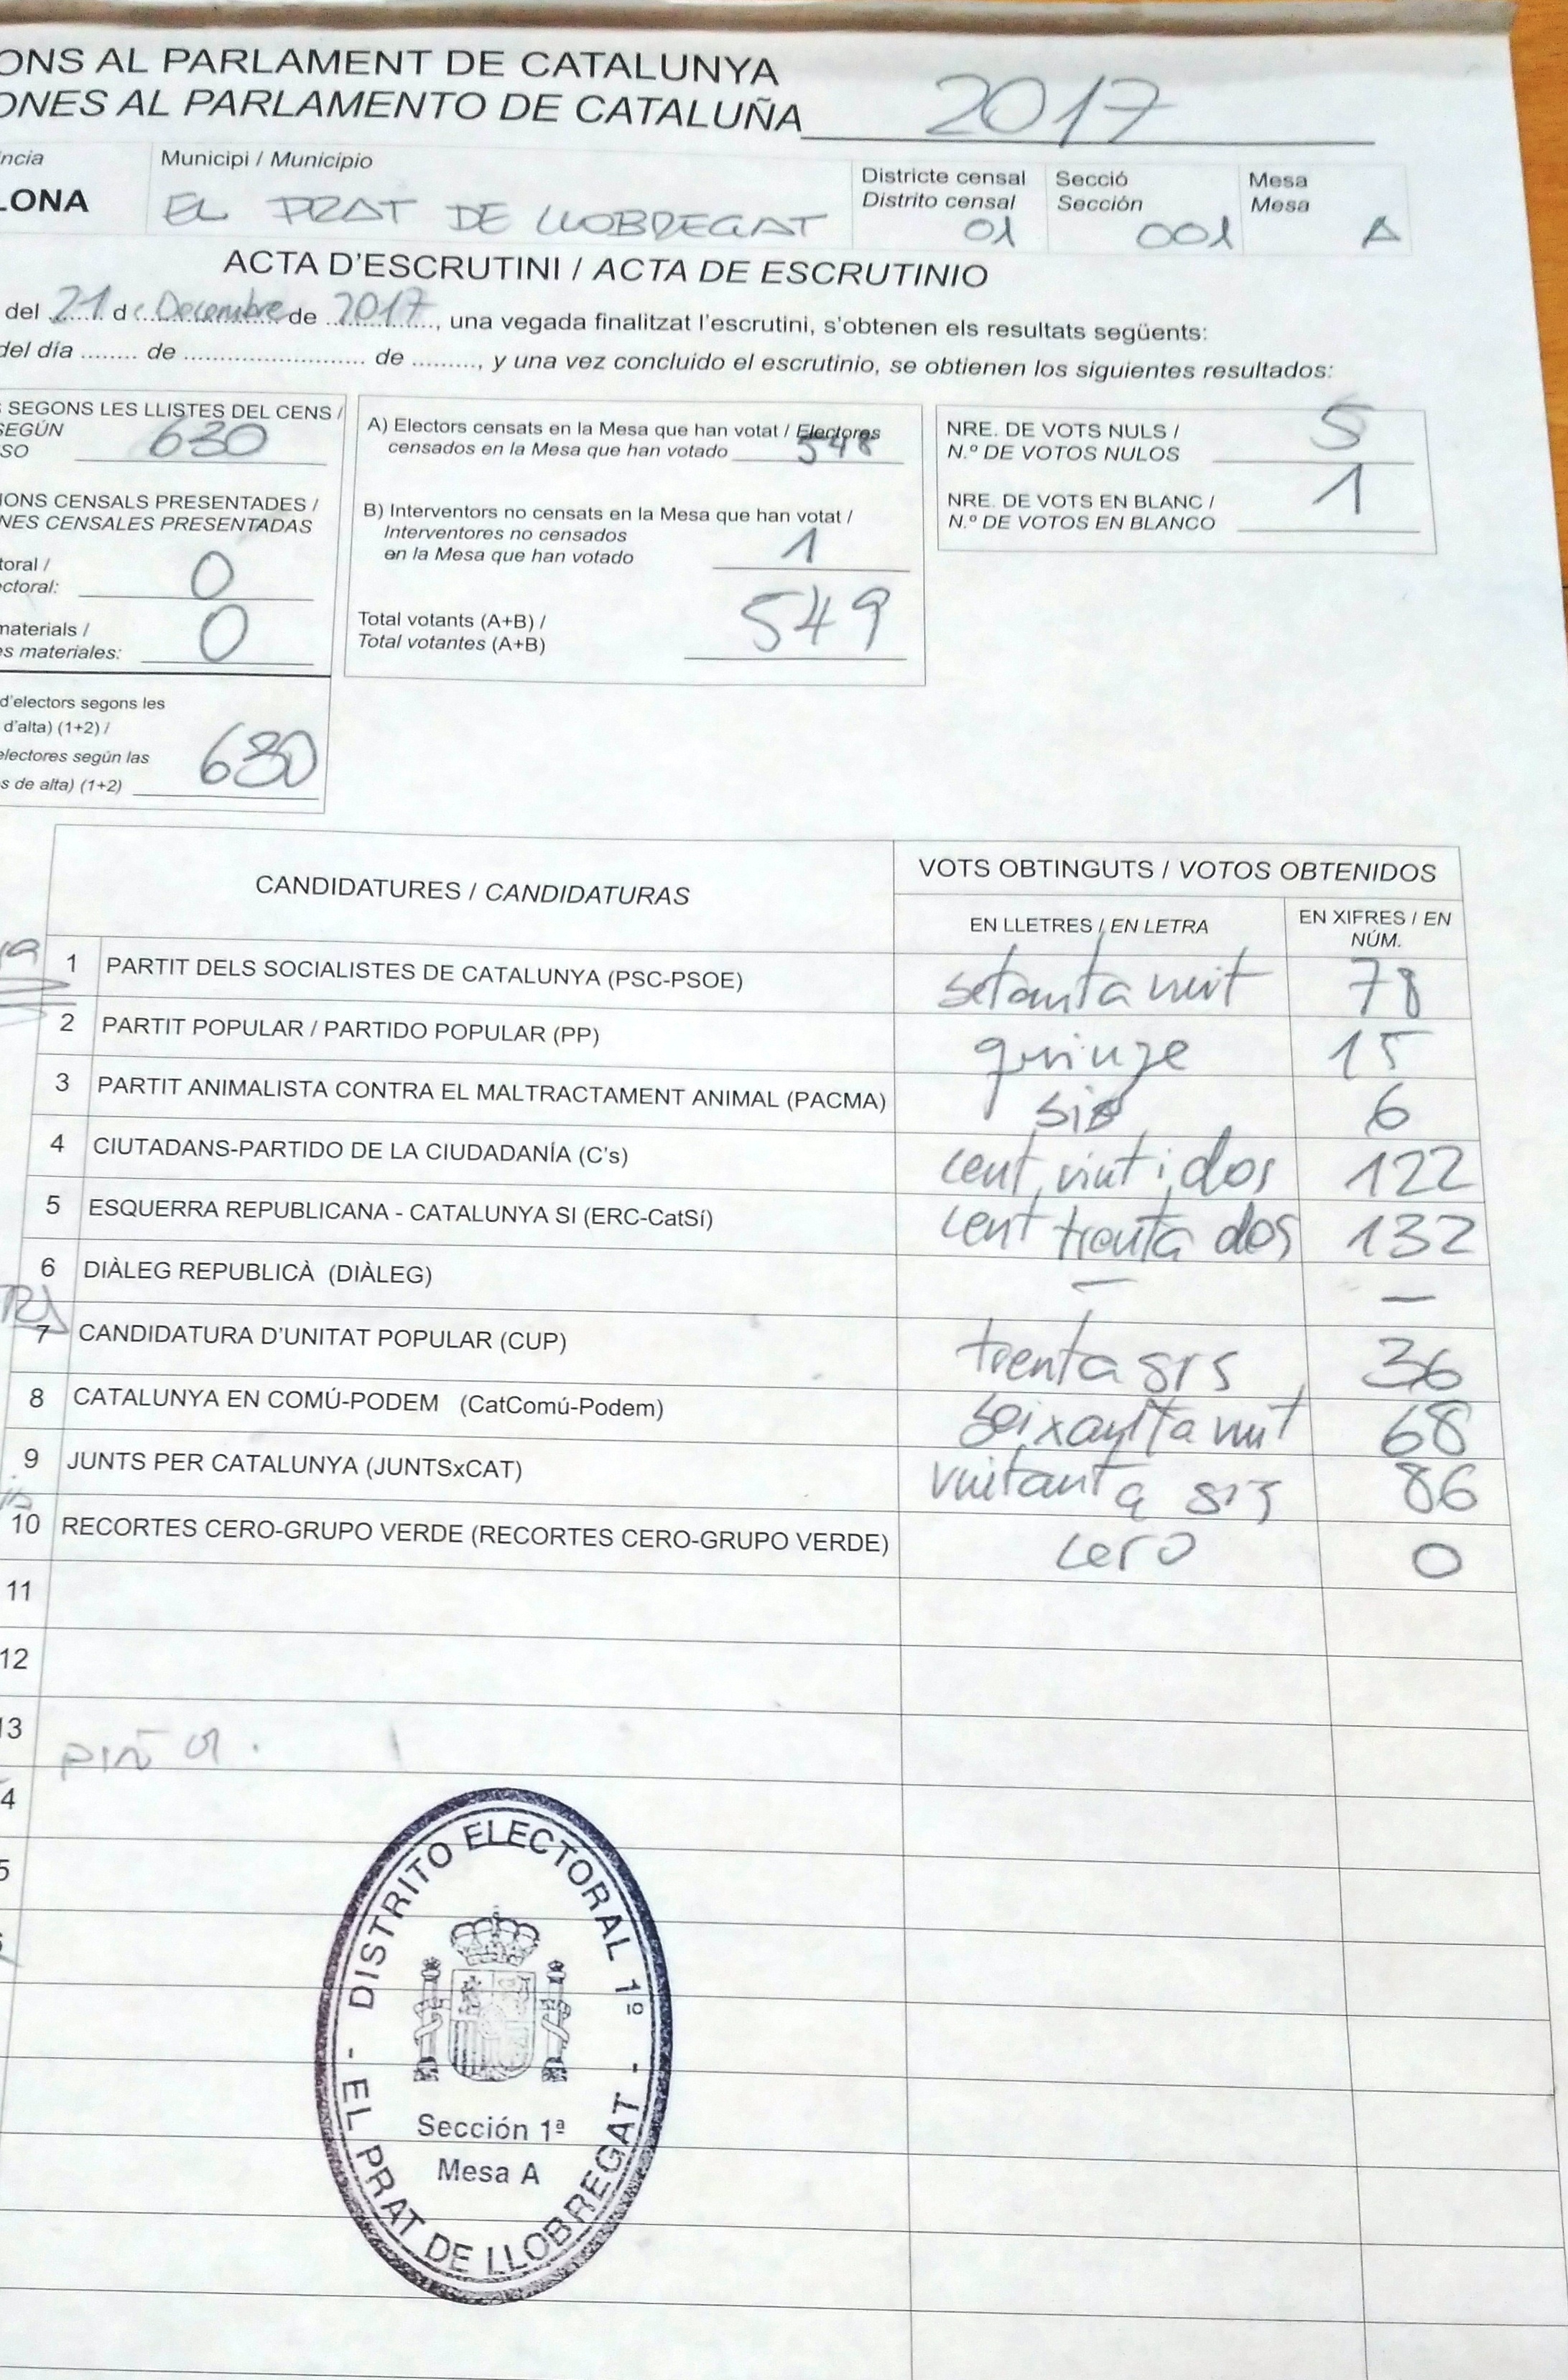 ONS AL PARLAMENT DE CATALUNYA
ONES AL PARLAMENTO DE CATALUÑA 2017
ncia Municipi / Municipio Districte censal Secció Mesa
Distrito censal Sección Mesa
LONA EL PRAT DE LLOBREGAT 01 001 A
ACTA D'ESCRUTINI / ACTA DE ESCRUTINIO
del 21 d Decembre de 2017, una vegada finalitzat l'escrutini, s'obtenen els resultats següents:
del día ........ de ............................ de ........., y una vez concluido el escrutinio, se obtienen los siguientes resultados:
SEGONS LES LLISTES DEL CENS /
SEGÚN
SO 630
IONS CENSALS PRESENTADES /
NES CENSALES PRESENTADAS
toral /
ectoral: 0
materials /
s materiales: 0
d'electors segons les
d'alta) (1+2) /
electores según las
s de alta) (1+2) 630
A) Electors censats en la Mesa que han votat / Electores
censados en la Mesa que han votado 548
B) Interventors no censats en la Mesa que han votat /
Interventores no censados
en la Mesa que han votado 1
Total votants (A+B) /
Total votantes (A+B) 549
NRE. DE VOTS NULS /
N.º DE VOTOS NULOS 5
NRE. DE VOTS EN BLANC /
N.º DE VOTOS EN BLANCO 1
CANDIDATURES / CANDIDATURAS VOTS OBTINGUTS / VOTOS OBTENIDOS
EN LLETRES / EN LETRA EN XIFRES / EN
NÚM.
1 PARTIT DELS SOCIALISTES DE CATALUNYA (PSC-PSOE) setanta vuit 78
2 PARTIT POPULAR / PARTIDO POPULAR (PP) quinze 15
3 PARTIT ANIMALISTA CONTRA EL MALTRACTAMENT ANIMAL (PACMA) sis 6
4 CIUTADANS-PARTIDO DE LA CIUDADANÍA (C's) cent vint i dos 122
5 ESQUERRA REPUBLICANA - CATALUNYA SI (ERC-CatSí) cent trenta dos 132
6 DIÀLEG REPUBLICÀ (DIÀLEG) — —
7 CANDIDATURA D'UNITAT POPULAR (CUP) trenta sis 36
8 CATALUNYA EN COMÚ-PODEM (CatComú-Podem) seixanta vuit 68
9 JUNTS PER CATALUNYA (JUNTSxCAT) vuitanta sis 86
10 RECORTES CERO-GRUPO VERDE (RECORTES CERO-GRUPO VERDE) cero 0
11
12
13
4
5
DISTRITO ELECTORAL 1º
Sección 1ª
Mesa A
- EL PRAT DE LLOBREGAT -